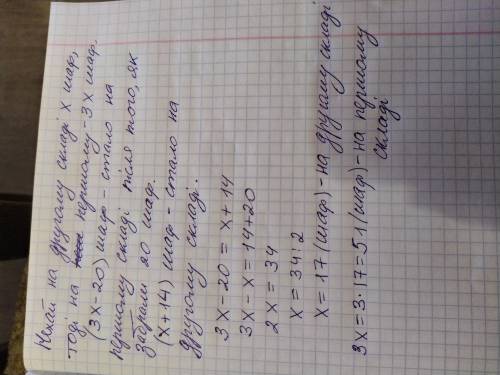 Нехай на другому складі х шаф,
тоді на першому - 3х шаф,
(3х-20) шаф - стало на
першому складі після того, як
забрали 20 шаф.
(х+14) шаф - стало на
другому складі.
3х-20 = х+14
3х-х = 14+20
2х = 34
х = 34:2
х = 17 (шаф) - на другому складі
3х = 3·17 = 51 (шаф) - на першому
складі